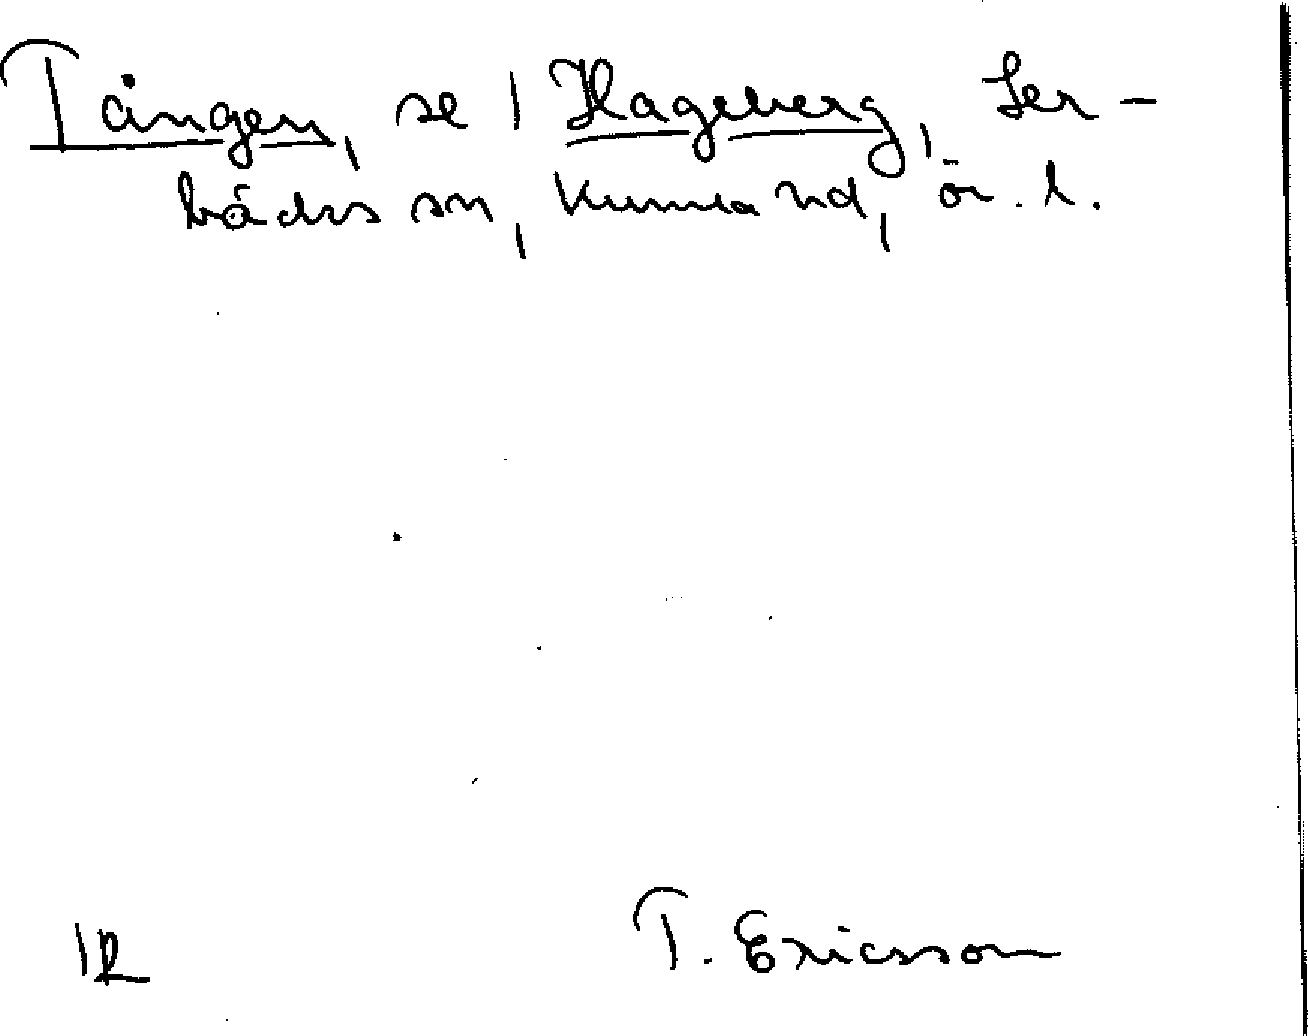 Tången, se 1 Hageberg, Ler-
bäcks sn, Kumla hd, Ör. l.
T. Ericsson